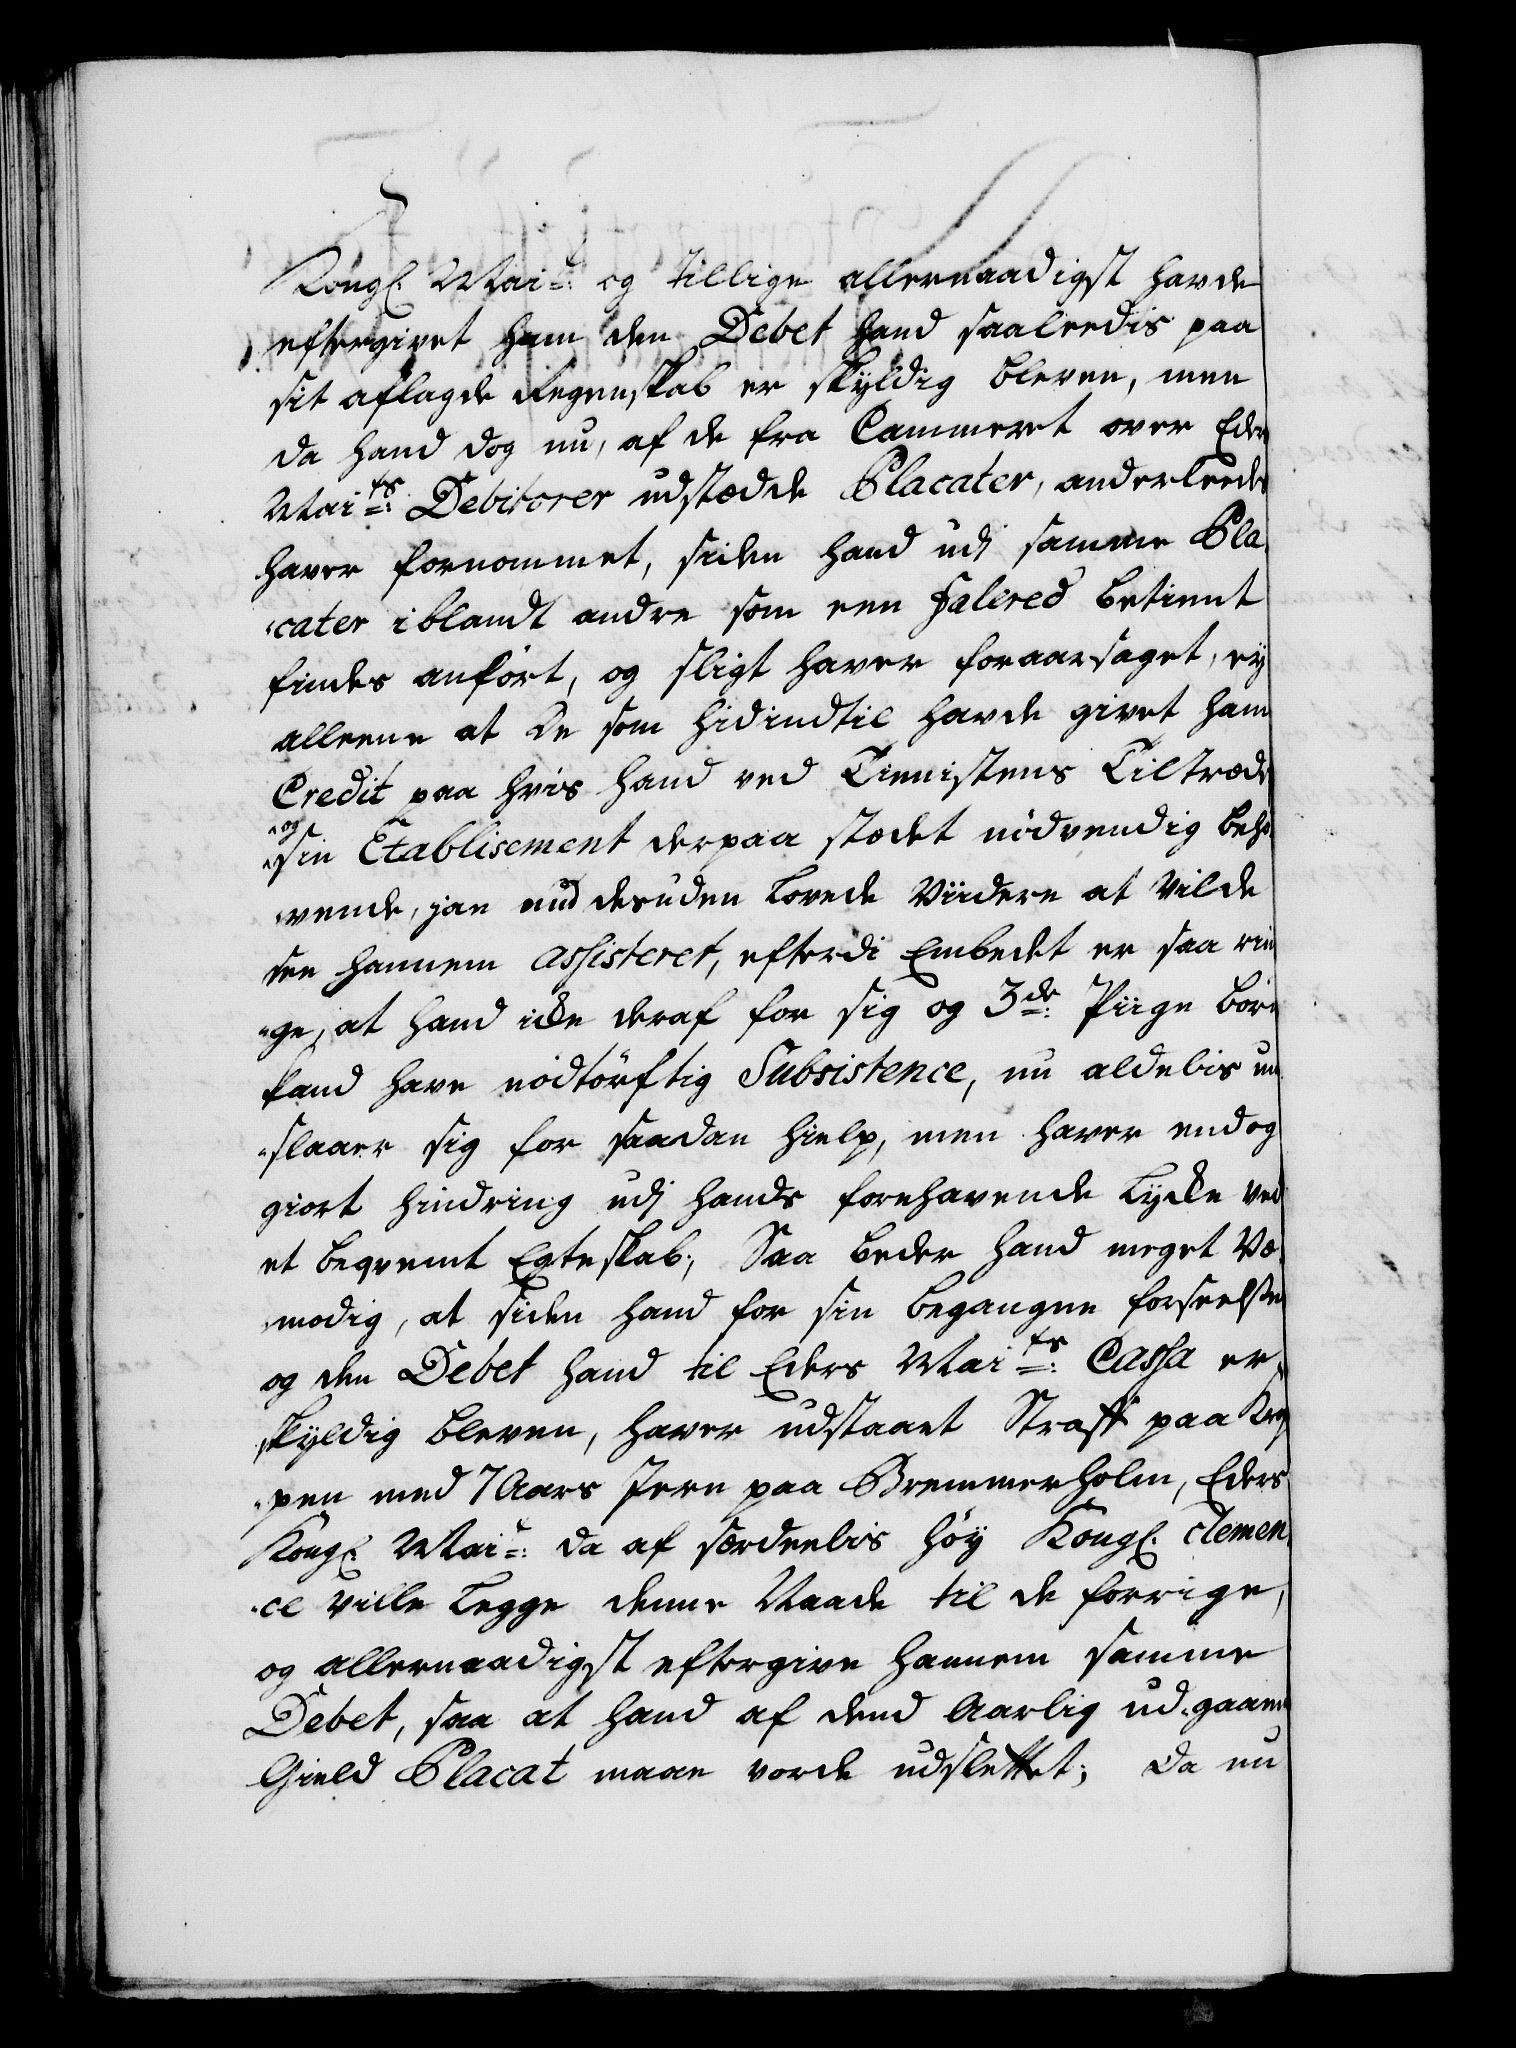 Kongl. Mai.t: og tillige allernaadigst havde
eftergivet ham den Debet hand saaleedis paa
sit aflagde Regenskab er skyldig bleven, men
da hand dog nu, af de fra Cammeret over Eders
Mai:ts Debitorer udstædde Placater, anderleedes
haver fornommet, siden hand udj samme Pla-
cater iblandt andre som een falered betient
findes anført, og sligt haver foraarsaget, ej
alleene at De som hidindtil havde givet ham
Credit paa hvis hand ved Tienistens Tiltræde
og
sin Etablisement derpaa stædet nødvendig behø-
vende, jae end desuden lovede Viidere at vilde
see hannem assisteret, efterdi Embedet er saa rin-
ge, at hand icke deraf for sig og 3de: Piige børn
kand have nødtørftig Subsistence, nu aldelis und-
slaaer sig for saadan hielp, men haver endog
giort hindring udj hands forehavende Lycke ved
et beqvemt Egteskab; Saa beder hand meget Væ-
modig, at siden hand for sin begangne forseelse
og den Debet hand til Eders Mai:ts Cassa er
skyldig bleven, haver udstaaet Straff paa Krop-
pen med 7 Aars Jern paa Bremmerholm, Eders
Kongl. Mai:t da af særdeelis høy Kongl. Clemen-
ce ville legge denne Naade til de forrige,
og allernaadigst eftergive hannem samme
Debet, saa at hand af dend Aarlig ud-gaaende
Gield Placat maae vorde udslettet; Da nu